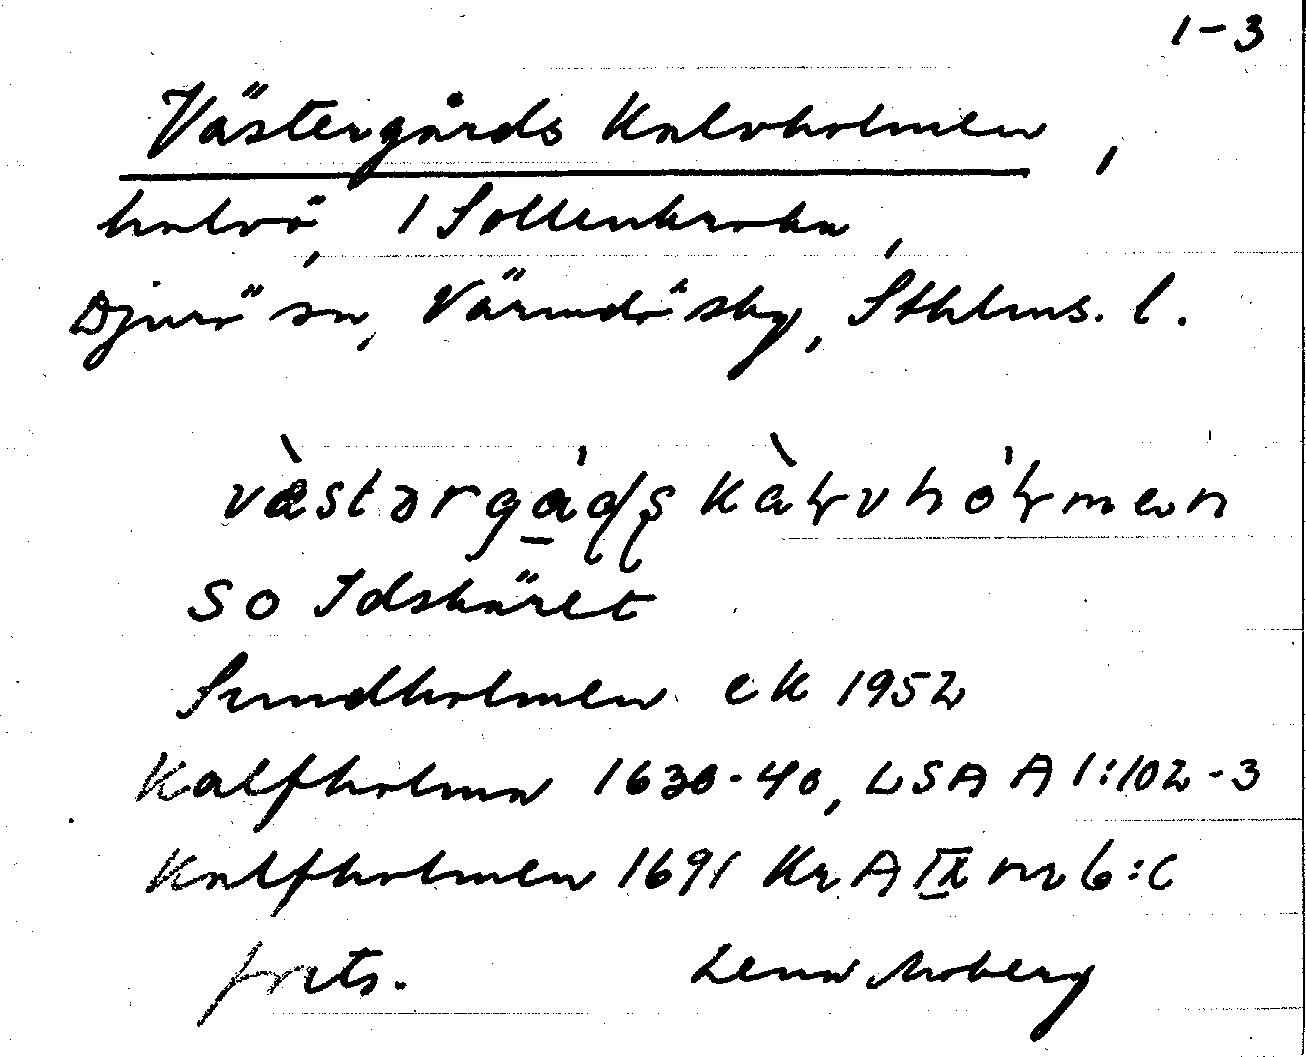 1-3
Västergårds Kalvholmen,
halvö, 1 Sollenkroka,
Djurö sn, Värmdö skg, Sthlms. l.
væ̀stərgȧḍṣ kàḷvhȯḷmen
SO Idskäret
Sundholmen ek 1952
Kalfholma 1630-40, LSA A 1:102-3
Kalfholmen 1691 Kr A IX nr 6:c
forts. Lena Moberg